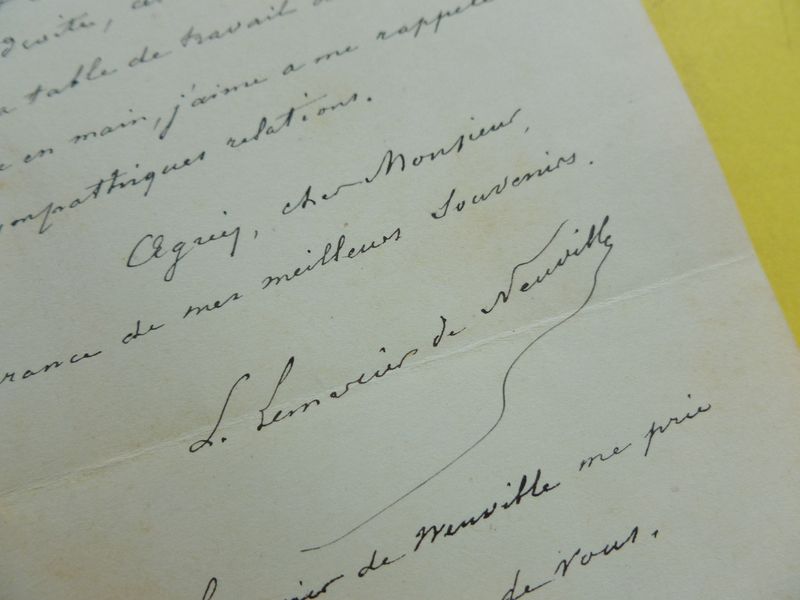 droite,
table de travail
en main, j'aime a me rappele
sympathiques relations.
Agréez, cher Monsieur,
rance de mes meilleurs souvenirs.
L. Lemercier de Neuville
ier de Neuville me prie
de vous.